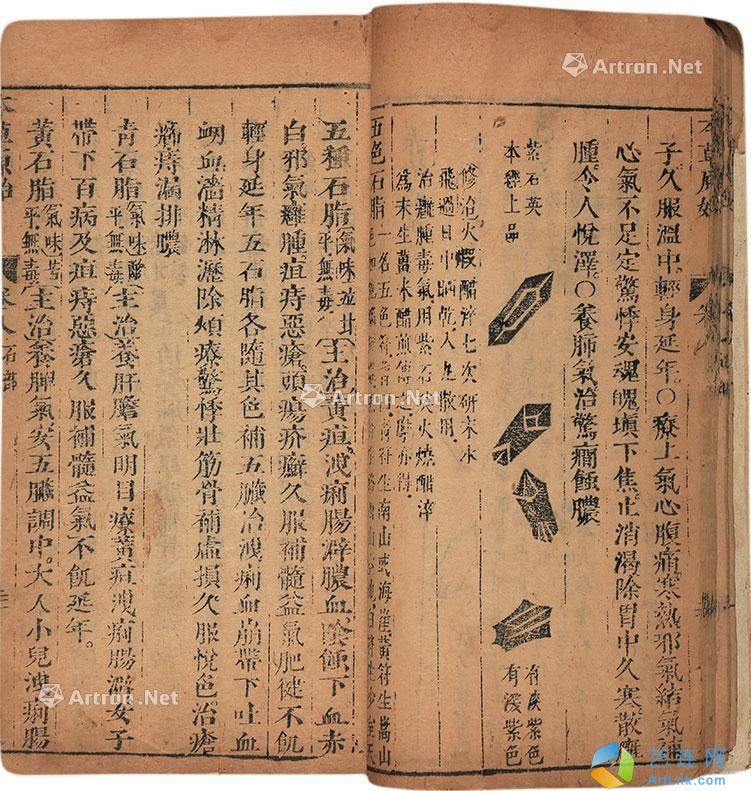 子久服溫中。輕身延年。○療上氣心腹痛寒熱邪氣結氣補
心氣不足定驚悸安魂魄塡下焦。止消渴除胃中久寒散癰
腫令人悅澤。○養肺氣治驚癇蝕膿
紫石英
本經上品
有淺紫色
有深紫色
修治火煆醋淬七次研末水
飛過日中晒乾入丸散用。
治癰腫毒氣用紫石英火燒醋淬
爲末生薑米醋煎傅之摩亦得。
五色石脂 一名五色符 青符生南山或海崖黃符生嵩山
五種石脂 氣味並甘平無毒 主治黃疸洩痢腸澼膿血陰蝕下血赤
白邪氣癰腫。疽痔惡瘡。頭瘍疥癬久服補髓益氣肥健不飢
輕身延年五石脂各隨其色補五臟治洩痢血崩帶下吐血
衂血澀精淋瀝除煩療驚悸壯筋骨補虛損久服悅色。治瘡
癤痔漏排膿
青石脂 氣味酸平無毒 主治養肝膽氣明目療黃疸洩痢腸澼女子
帶下百病及疽痔惡瘡久服補髓益氣不飢延年。
黃石脂 氣味苦平無毒 主治養脾氣安五臟調中。大人小兒洩痢腸
本草原始
卷八 石部
Artron.Net
Artron.Net
Artron.Net
Artron.Net
艺连网
ArtLink.com